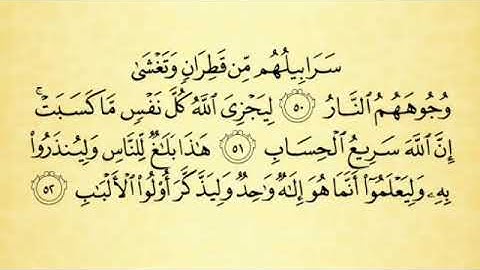 سَرَابِيلُهُم مِّن قَطِرَانٍ وَتَغْشَىٰ
وُجُوهَهُمُ النَّارُ ٥٠ لِيَجْزِىَ اللَّهُ كُلَّ نَفْسٍ مَّا كَسَبَتْ ۚ
إِنَّ اللَّهَ سَرِيعُ الْحِسَابِ ٥١ هَٰذَا بَلَٰغٌ لِّلنَّاسِ وَلِيُنذَرُوا
بِهِۦ وَلِيَعْلَمُوٓا أَنَّمَا هُوَ إِلَٰهٌ وَٰحِدٌ وَلِيَذَّكَّرَ أُو۟لُوا الْأَلْبَٰبِ ٥٢